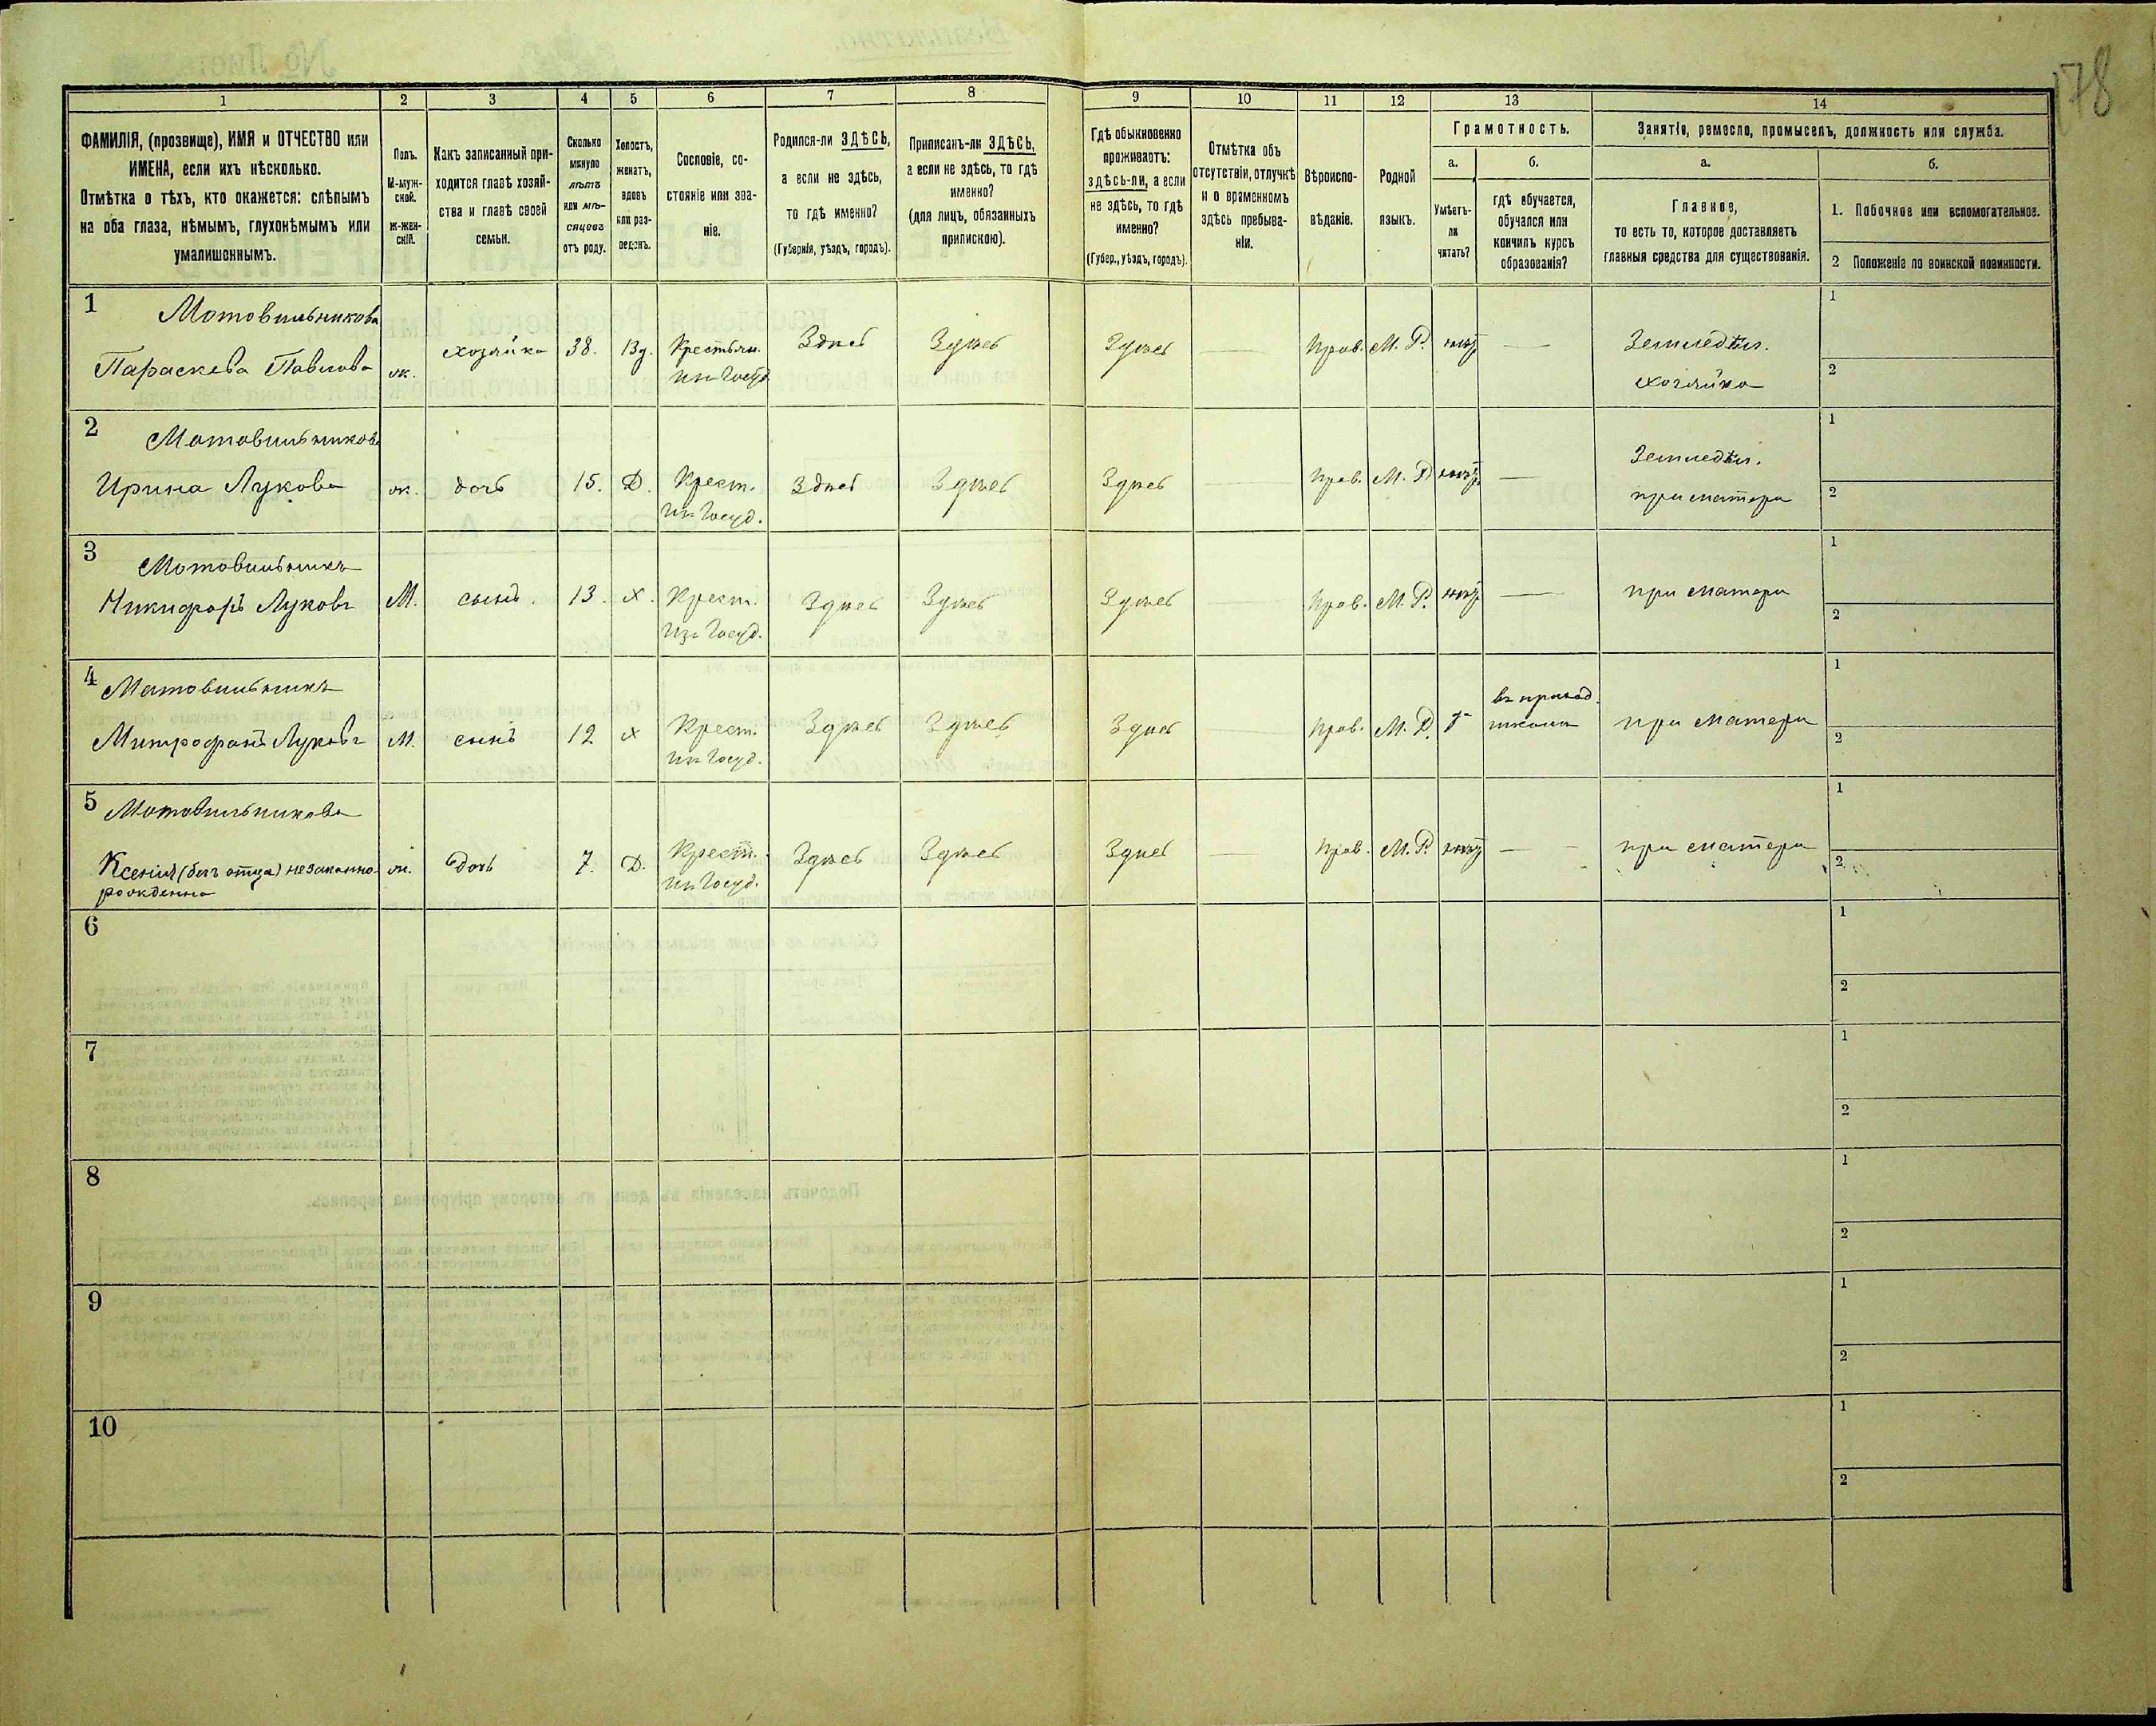 178
1 2 3 4 5 6 7 8 9 10 11 12 13 14
ФАМИЛІЯ, (прозвище), ИМЯ и ОТЧЕСТВО или
ИМЕНА, если ихъ нѣсколько.
Отмѣтка о тѣхъ, кто окажется: слѣпымъ
на оба глаза, нѣмымъ, глухонѣмымъ или
умалишеннымъ.
Полъ.
М-муж-
ской.
Ж-жен-
скій.
Какъ записанный при-
ходится главѣ хозяй-
ства и главѣ своей
семьи.
Сколько
минуло
лѣтъ
или мѣ-
сяцевъ
отъ роду.
Холостъ,
женатъ,
вдовъ
или раз-
веденъ.
Сословіе, со-
стояніе или зва-
ніе.
Родился-ли ЗДѢСЬ,
а если не здѣсь,
то гдѣ именно?
(Губернія, уѣздъ, городъ).
Приписанъ-ли ЗДѢСЬ,
а если не здѣсь, то гдѣ
именно?
(для лицъ, обязанныхъ
припискою).
Гдѣ обыкновенно
проживаетъ:
здѣсь-ли, а если
не здѣсь, то гдѣ
именно?
(Губер., уѣздъ, городъ).
Отмѣтка объ
отсутствіи, отлучкѣ
и о временномъ
здѣсь пребыва-
ніи.
Вѣроиспо-
вѣданіе.
Родной
языкъ.
Грамотность.
а.
Умѣетъ-
ли
читать?
б.
гдѣ обучается,
обучался или
кончилъ курсъ
образованія?
Занятіе, ремесло, промыселъ, должность или служба.
а.
Главное,
то есть то, которое доставляетъ
главныя средства для существованія.
б.
1. Побочное или вспомогательное.
2 Положеніе по воинской повинности.
1 Мотовильникова
Параскева Павлова ж. хозяйка 38. Вд. Крестьян. Здѣсь Здѣсь Здѣсь — Прав. М. Р. — Земледѣл. 1
изъ Госуд. хозяйка 2
2 Мотовильникова
Ирина Лукова ж. дочь 15. Д. Крест. Здѣсь Здѣсь Здѣсь Прав. М. Р. — Земледѣл. 1
изъ Госуд. при матери 2
3 Мотовильникъ
Никифоръ Луковъ М. сынъ. 13. Х. Крест. Здѣсь Здѣсь Здѣсь Прав. М. Р. — при матери 1
изъ Госуд. 2
4 Мотовильникъ
Митрофанъ Луковъ М. сынъ 12 Х Крест. Здѣсь Здѣсь Здѣсь Прав. М. Р. въ приход. при матери 1
изъ Госуд. школѣ 2
5 Мотовильникова
Ксенія (безъ отца) незаконно- ж. дочь 7. Д. Крест. Здѣсь Здѣсь Здѣсь — Прав. М. Р. — при матери 1
рожденна изъ Госуд. 2
6 1
2
7 1
2
8 1
2
9 1
2
10 1
2